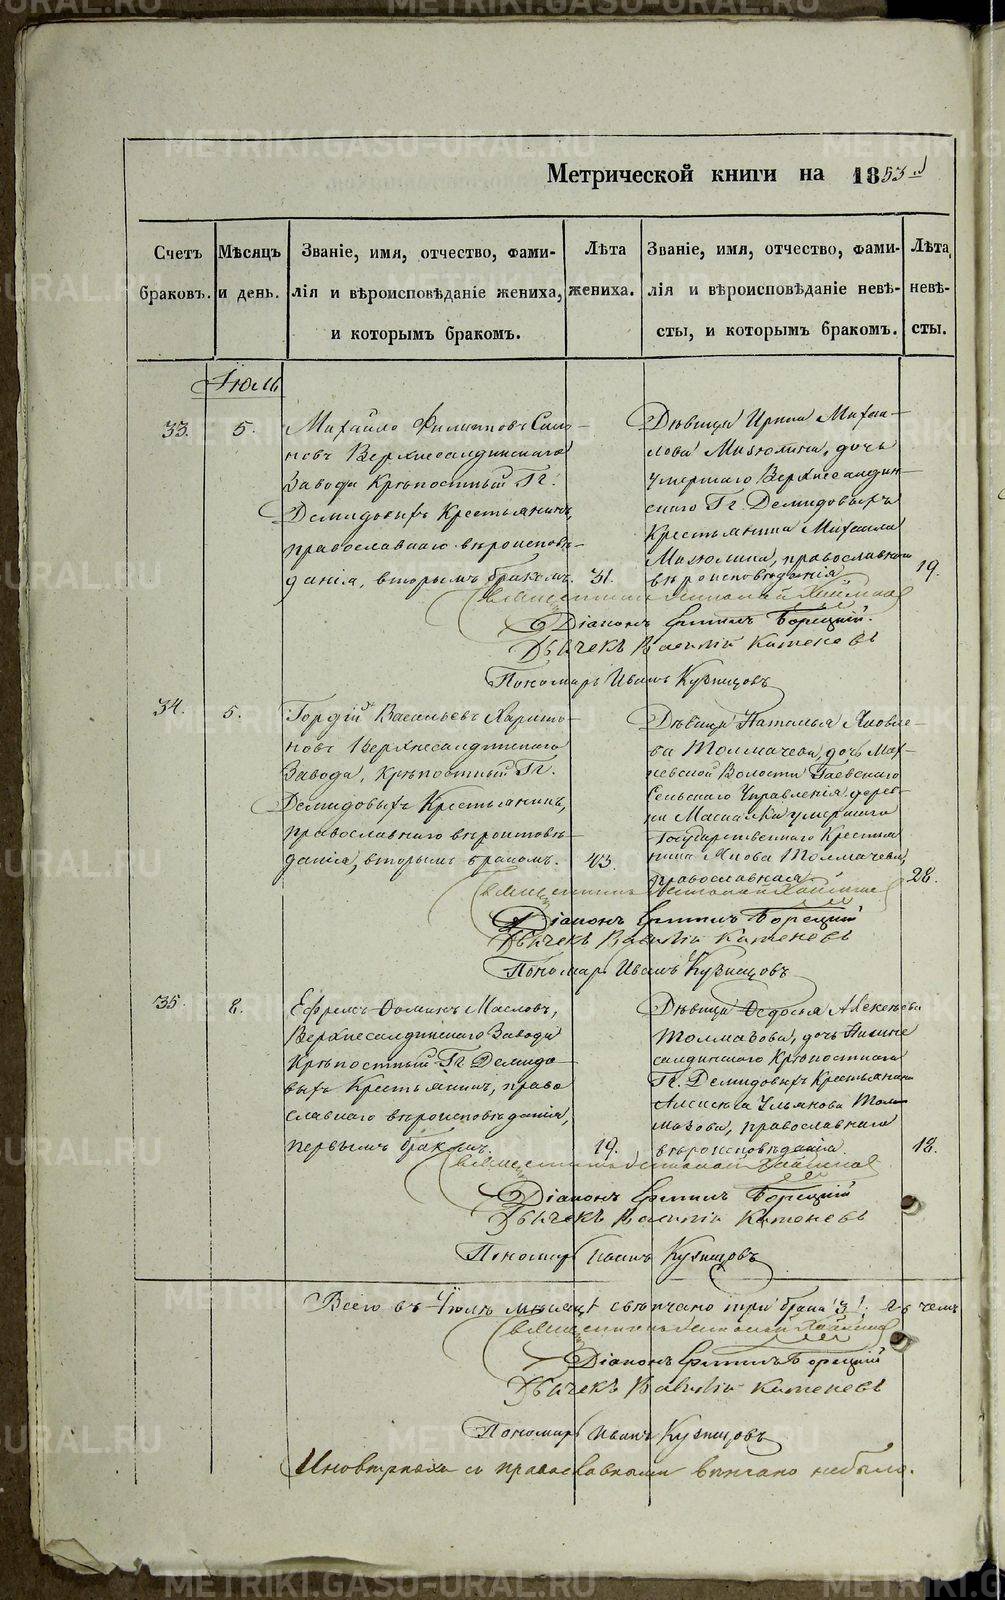 Метрической книги на 1853 д
Счетъ браковъ.
Мѣсяцъ и день.
Званіе, имя, отчество, фами-
лія и вѣроисповѣданіе жениха,
и которымъ бракомъ.
Лѣта жениха.
Званіе, имя, отчество, фами-
лія и вѣроисповѣданіе невѣ-
сты, и которымъ бракомъ.
Лѣта невѣ-
сты.
Іюль
33.
5.
Михайло Филипповъ
Верхнесалдинскаго
Завода Крѣпостный Гг.
Демидовыхъ Крестьянинъ,
православнаго вѣроисповѣ-
данія, вторымъ бракомъ.
31.
Дѣвица Ирина Михаи-
лова Мизюлина, дочь
умершаго Верхнесалдин-
скаго Гг. Демидовыхъ
Крестьянина Михаила
Мизюлина, православнаго
вѣроисповѣданія
19.
Священникъ
Діаконъ Борецкій.
Дьячекъ Василій Катеневъ
Пономарь Иванъ Кузнецовъ
34.
5.
Гордій Васильевъ Харито-
новъ Верхнесалдинскаго
Завода, Крѣпостный Гг.
Демидовыхъ Крестьянинъ,
православнаго вѣроисповѣ-
данія, вторымъ бракомъ.
43.
Дѣвица Наталья Яковле-
ва Толмачева, дочь Мах-
невской Волости Гаевскаго
Сельскаго Управленія дерев-
ни умершаго
Государственнаго Крестья
нина Якова Толмачева,
православная
28.
Священникъ
Діаконъ Борецкій
Дьячекъ Василій Катеневъ
Пономарь Иванъ Кузнецовъ
35.
8.
Ефремъ Ѳоминъ Масловъ,
Верхнесалдинскаго Завода
Крѣпостный Гг Демидо-
выхъ Крестьянинъ, право
славнаго вѣроисповѣданія,
первымъ бракомъ.
19.
Дѣвица Ѳедосья Алексѣева
дочь Нижне
салдинскаго Крѣпостнаго
Гг. Демидовыхъ Крестьянина
Алексѣя Ульянова
православнаго
вѣроисповѣданія.
18.
Священникъ
Діаконъ Борецкій
Дьячекъ Василій Катеневъ
Пономарь Иванъ Кузнецовъ
Всего въ Іюлѣ мѣсяцѣ свѣнчано три брака 3! въ чемъ
Священникъ
Діаконъ Борецкій
Дьячекъ Василій Катеневъ
Пономарь Иванъ Кузнецовъ
Иновѣрныхъ съ православными вѣнчано небыло.
METRIKI.GASO-URAL.RU